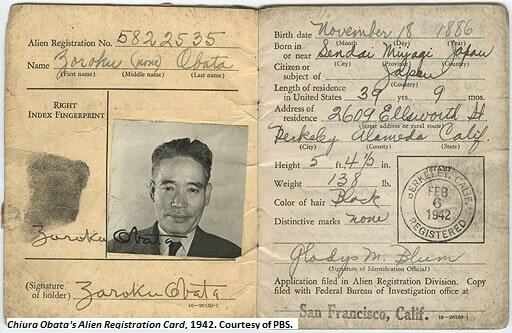 Alien Registration No. 5822535
Name Zoroku (none) Obata
(First name) (Middle name) (Last name)
RIGHT
INDEX FINGERPRINT
Zoroku Obata
(Signature
of holder) Zoroku Obata
16—26150-1
Birth date November 18 1886
(Month) (Day) (Year)
Born in
or near Sendai Miyagi Japan
(City) (Province) (Country)
Citizen or
subject of Japan
(Country)
Length of residence
in United States 39 yrs., 9 mos.
Address of
residence 2609 Ellsworth St.
(Street address or rural route)
Berkeley Alameda Calif.
(City) (County) (State)
Height 5 ft. 4½ in.
Weight 138 lb.
Color of hair Black
Distinctive marks none
STAMP
BERKELEY, CALIF.
FEB
6
1942
REGISTERED
Gladys M. Blum
(Signature of Identification Official)
Application filed in Alien Registration Division. Copy
filed with Federal Bureau of Investigation office at
San Francisco, Calif.
16—26150-1
Chiura Obata's Alien Registration Card, 1942. Courtesy of PBS.